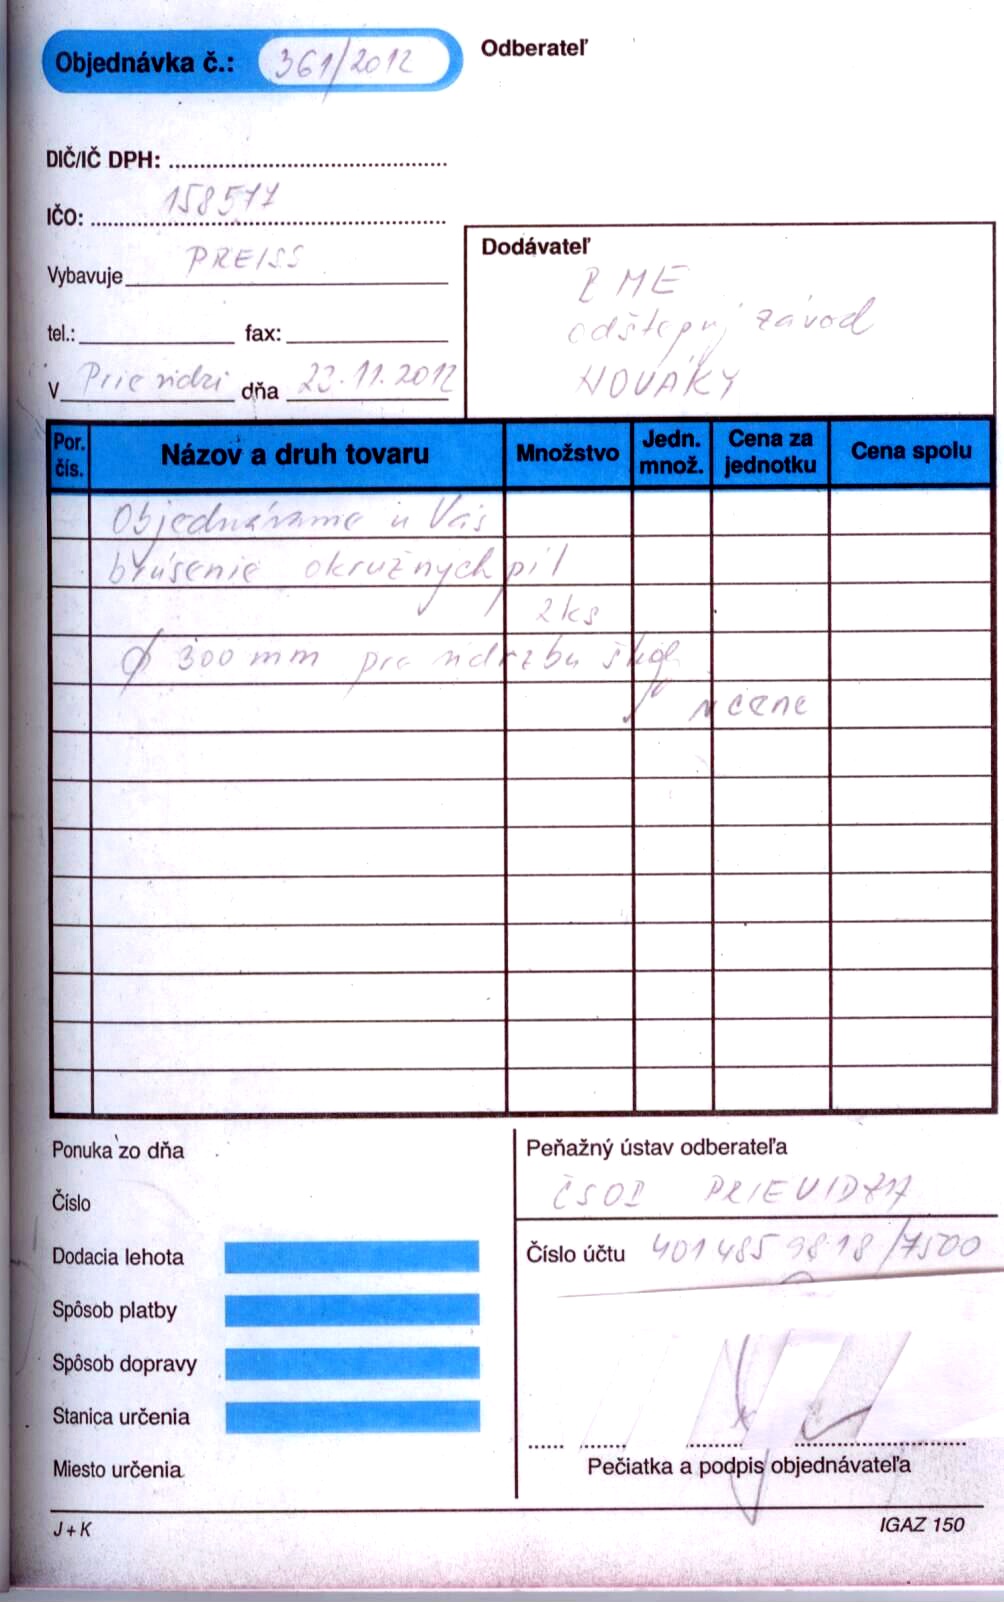 Objednávka č.: 361/2012
Odberateľ
DIČ/IČ DPH:
IČO: 158577
Vybavuje PREISS
tel.: fax:
V Prievidzi dňa 23.11.2012
Dodávateľ
BME
odštepný závod
NOVÁKY
Por. čís. Názov a druh tovaru Množstvo Jedn. množ. Cena za jednotku Cena spolu
Objednávame u Vás
brúsenie okružných píl
2ks
Ø 300 mm pre údržbu škol
v cene
Ponuka zo dňa
Číslo
Dodacia lehota
Spôsob platby
Spôsob dopravy
Stanica určenia
Miesto určenia
Peňažný ústav odberateľa
ČSOB PRIEVIDZA
Číslo účtu 4014859818/7500
Pečiatka a podpis objednávateľa
J + K
IGAZ 150